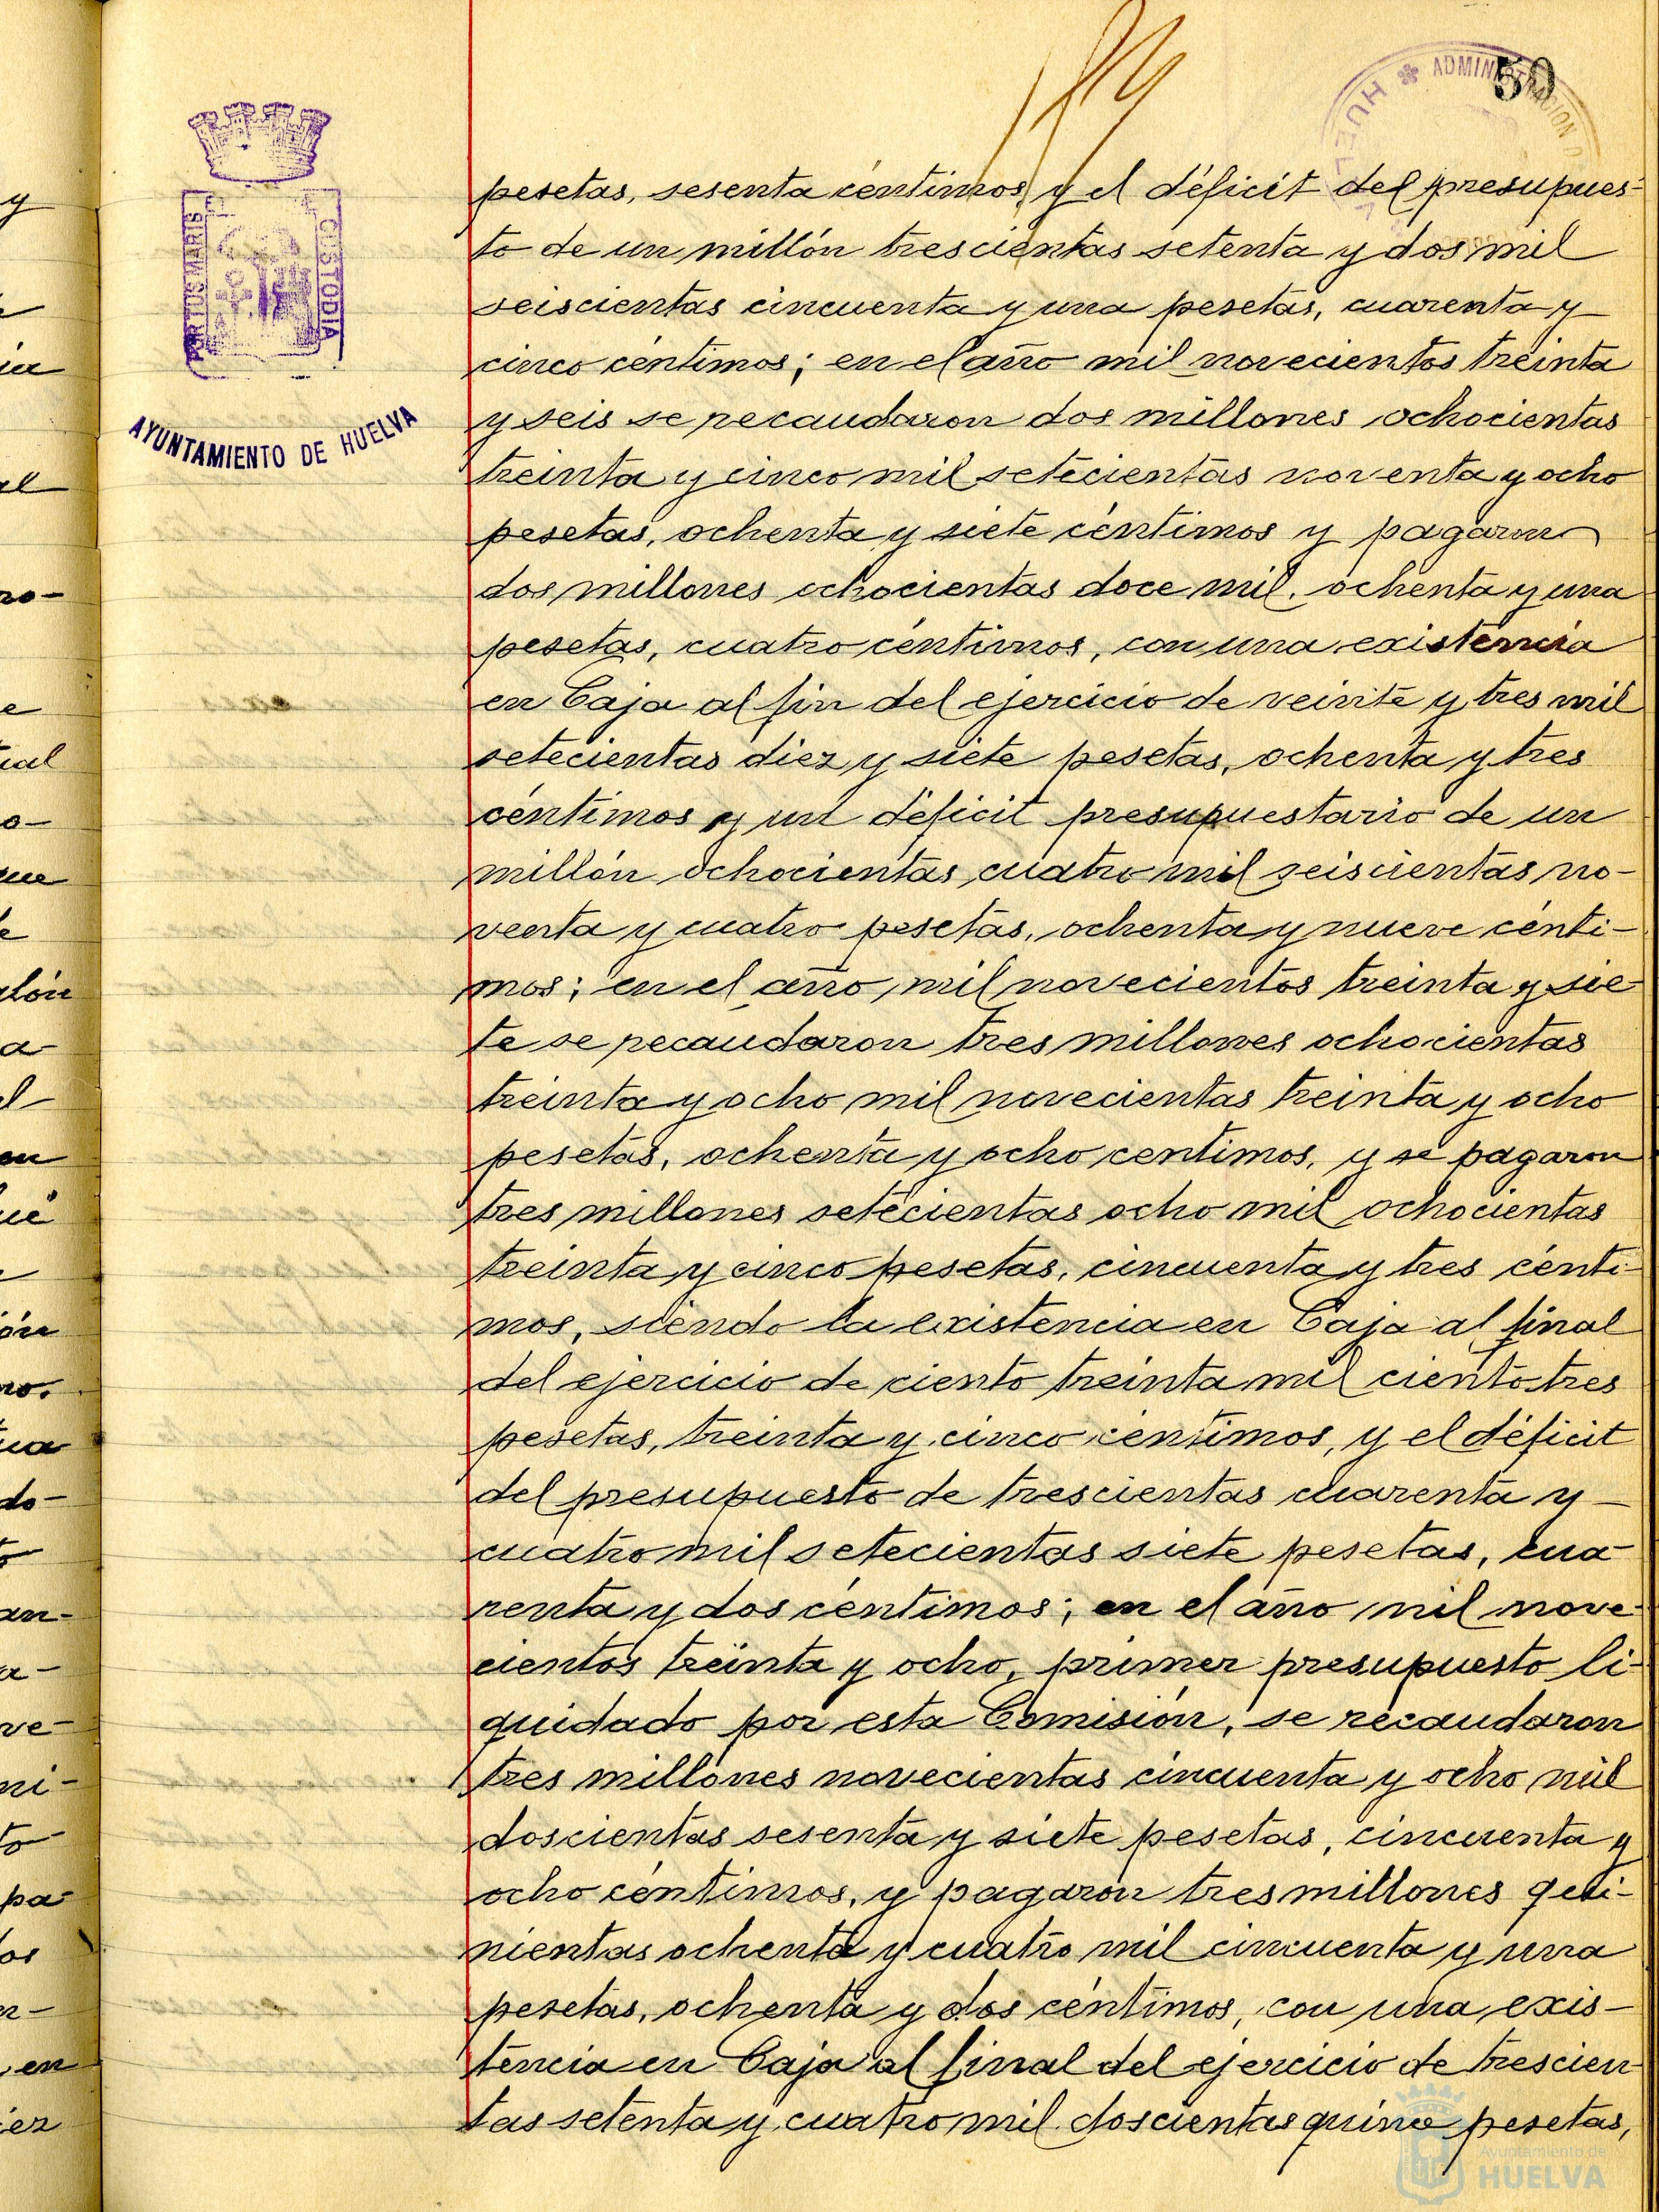 50
HUELVA * ADMINISTRACION D
PORTUS MARIS
CUSTODIA
AYUNTAMIENTO DE HUELVA
pesetas, sesenta céntimos y el déficit del presupues-
to de un millón trescientas setenta y dos mil
seiscientas cincuenta y una pesetas, cuarenta y
cinco céntimos; en el año mil novecientos treinta
y seis se recaudaron dos millones ochocientas
treinta y cinco mil setecientas noventa y ocho
pesetas, ochenta y siete céntimos y pagaron
dos millones ochocientas doce mil ochenta y una
pesetas, cuatro céntimos, con una existencia
en Caja al fin del ejercicio de veinte y tres mil
setecientas diez y siete pesetas, ochenta y tres
céntimos y un déficit presupuestario de un
millón ochocientas cuatro mil seiscientas no-
venta y cuatro pesetas, ochenta y nueve cénti-
mos; en el año mil novecientos treinta y sie-
te se recaudaron tres millones ochocientas
treinta y ocho mil novecientas treinta y ocho
pesetas, ochenta y ocho centimos, y se pagaron
tres millones setecientas ocho mil ochocientas
treinta y cinco pesetas, cincuenta y tres cénti-
mos, siendo la existencia en Caja al final
del ejercicio de ciento treinta mil ciento tres
pesetas, treinta y cinco céntimos, y el déficit
del presupuesto de trescientas cuarenta y
cuatro mil setecientas siete pesetas, cua-
renta y dos céntimos; en el año mil nove-
cientos treinta y ocho, primer presupuesto li-
quidado por esta Comisión, se recaudaron
tres millones novecientas cincuenta y ocho mil
doscientas sesenta y siete pesetas, cincuenta y
ocho céntimos, y pagaron tres millones qui-
nientas ochenta y cuatro mil cincuenta y una
pesetas, ochenta y dos céntimos, con una exis-
tencia en Caja al final del ejercicio de trescien-
tas setenta y cuatro mil doscientas quince pesetas,
Ayuntamiento de
HUELVA